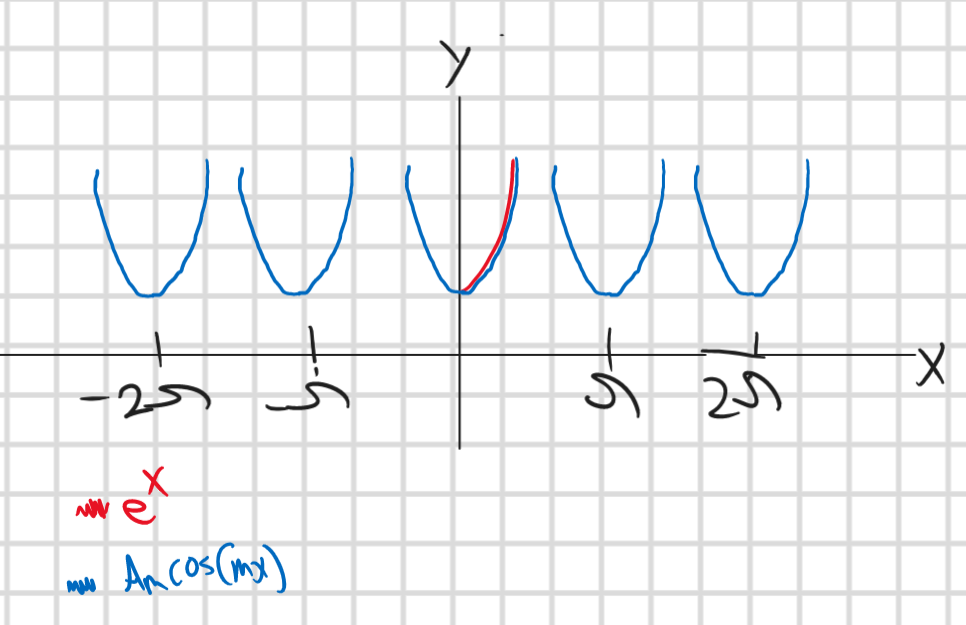 Y
-2π -π π 2π X
e^x
An cos(mx)